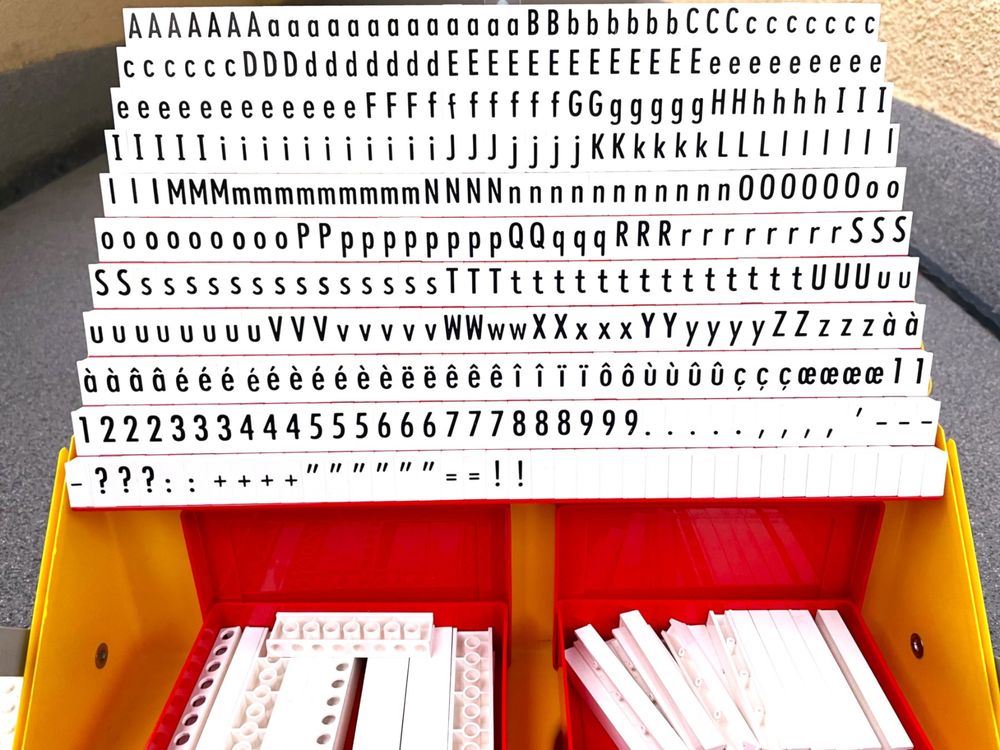 AAAAAAAaaaaaaaaaaaaaBBbbbbbbCCCccccccc
ccccccDDDdddddddEEEEEEEEEEEEEeeeeeeeee
eeeeeeeeeeeeFFFfffffffGGgggggHHhhhhIII
IIIIIiiiiiiiiiiiJJJjjjjKKkkkkLLLllllll
lllMMMmmmmmmmmmNNNNnnnnnnnnnnnOOOOOOoo
oooooooooPPppppppppQQqqqRRRrrrrrrrrSSS
SSssssssssssssssTTTttttttttttttttUUUuu
uuuuuuuuVVVvvvvvWWwwXXxxxYYyyyyZZzzzàà
ààââéééééèééèèëëêêêîîïïôôùùûûçççœœœœ11
1222333444555666777888999.....,,,,'---
-???::++++""""""==!!